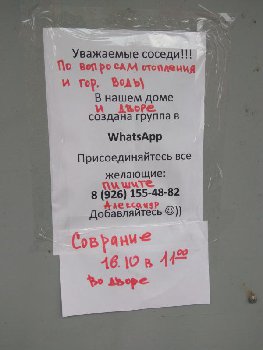 Уважаемые соседи!!!
По вопросам отопления
и гор. воды
В нашем доме
и дворе
создана группа в
WhatsApp
Присоединяйтесь все
желающие:
пишите
8 (926) 155-48-82
Александр
Добавляйтесь ☺))
Собрание
16.10 в 11 00
Во дворе